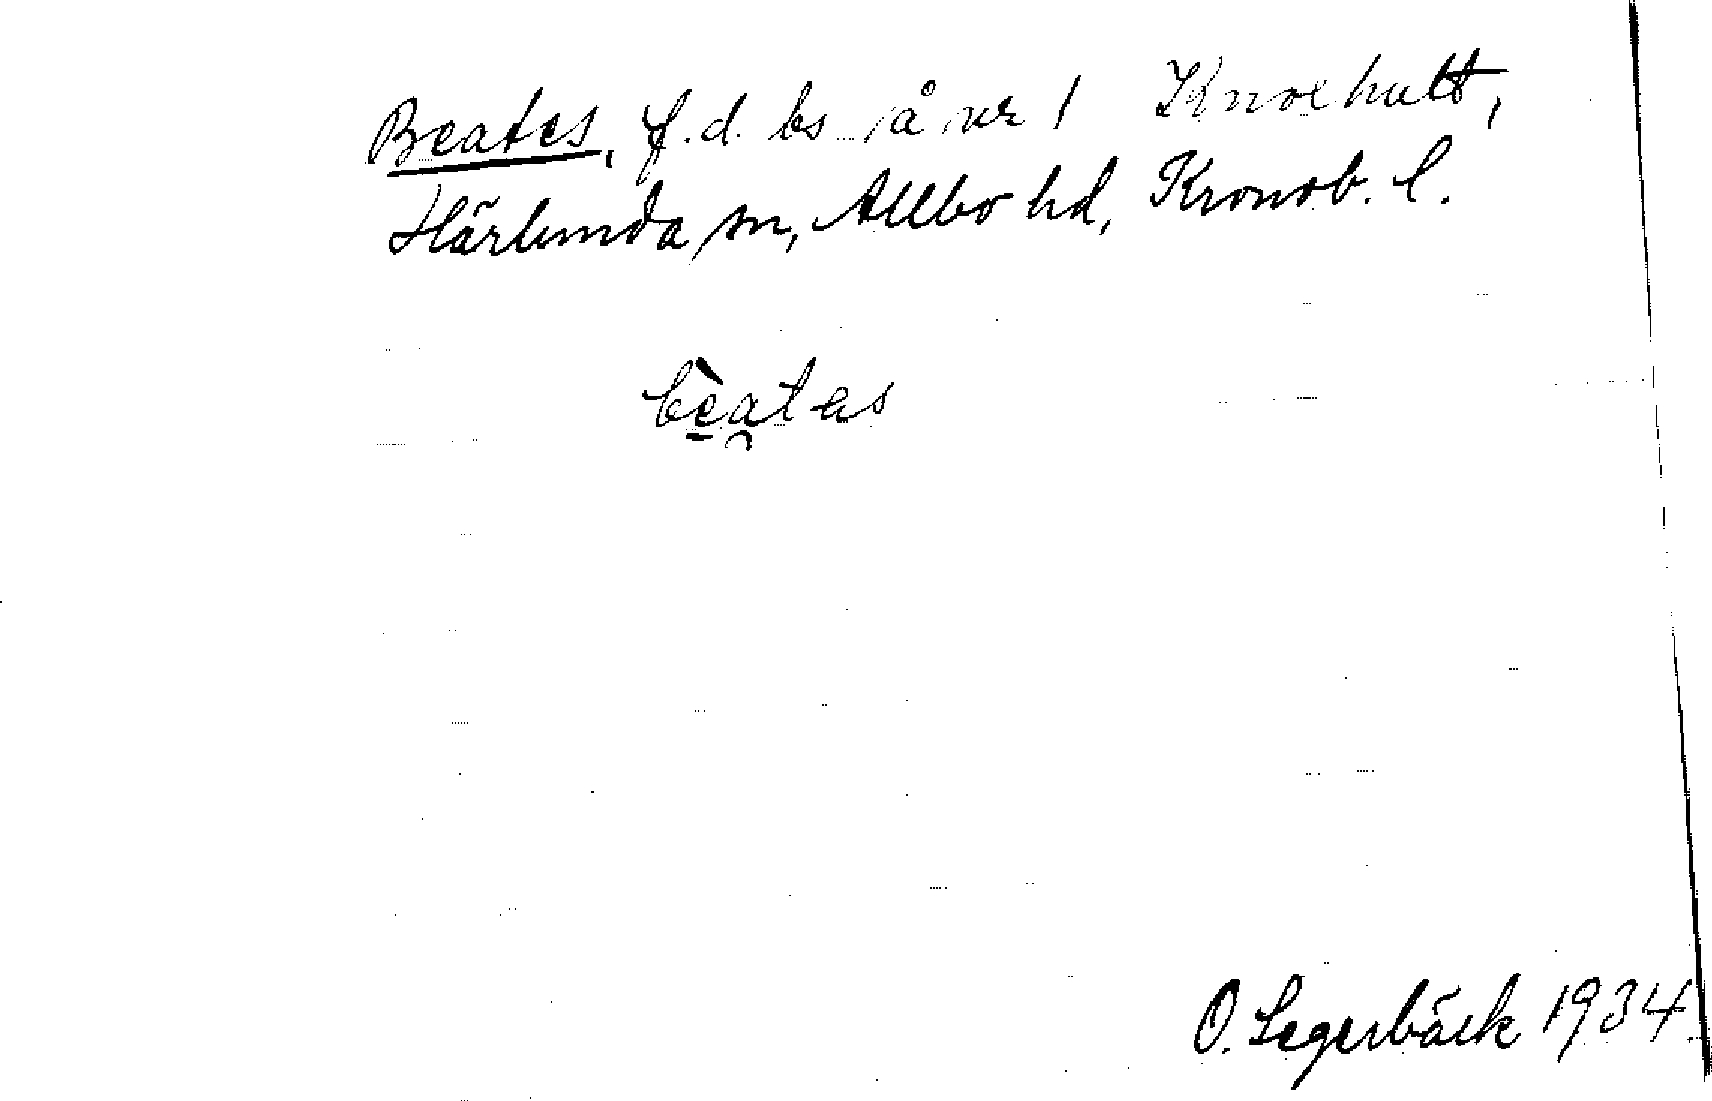 Beates, f.d. bs å nr 1 Knoxhult,
Härlunda sn, Allbo hd, Kronob. l.
bèa̯tas
O. Segerbäck 1934.